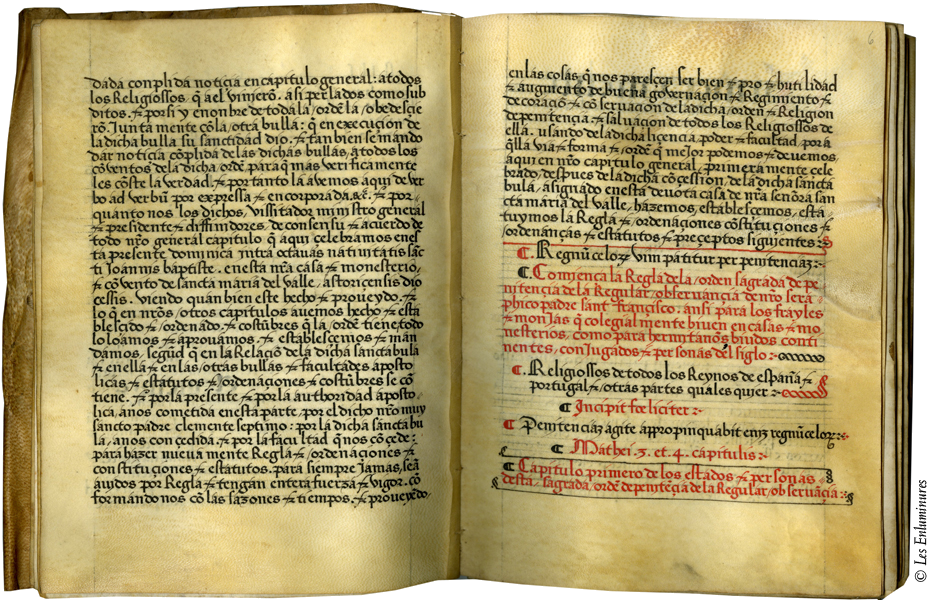 dada conplida noticia en capitulo general: a todos
los Religiossos q̃ a el vinierõ. asi perlados como sub
ditos. ⁊ por si y en onbre de toda la / ordẽ la / obedescie
rõ. Junta mente cõ la / otra bulla: q̃ en execucion de
la dicha bulla su sanctidad dio. ⁊ tan bien se mando
dar noticia cõplida de las dichas bullas, a todos los
cõventos de la dicha / ordẽ para q̃ mas verifica mente
les cõste la verdad. ⁊ por tanto la avemos aqui de ver
bo ad verbũ por expressa ⁊ encorporada.
quanto nos los dichos, vissitador ministro general
⁊ presidente ⁊ diffinidores, de consensu ⁊ acuerdo de
todo nr̃o general capitulo q̃ aqui celebramos en es
ta presente dominica yntra octauas natiuitatis sãc
ti Joannis baptiste. en esta nr̃a casa ⁊ monesterio,
⁊ cõvento de sancta maria del valle, astoricensis dio
cessis. viendo quan bien este hecho ⁊ proueydo. ⁊
lo q̃ en nr̃os / otros capitulos auemos hecho ⁊ esta
blescido ⁊ / ordenado. ⁊ costũbres q̃ la / ordẽ tiene. todo
lo loamos ⁊ aprouamos. ⁊ establescemos ⁊ man
damos, segũd q̃ en la Relaciõ de la dicha sancta bula
⁊ en ella ⁊ en las / otras bullas ⁊ facultades aposto
licas ⁊ estatutos ⁊ / ordenaciones ⁊ costũbres se cõ
tiene. ⁊ por la presente ⁊ por la authoridad aposto
lica, a nos cometida en esta parte, por el dicho nr̃o muy
sancto padre clemente septimo: por la dicha sancta bu
la, a nos concedida. ⁊ por la facultad q̃ nos cõcede:
para hazer nueua mente Regla ⁊ / ordenaciones ⁊
constituciones ⁊ estatutos. para siempre Jamas, seã
auidos por Regla ⁊ tengan entera fuerza ⁊ vigor. cõ
formando nos cõ las sazones ⁊ tiempos. ⁊ proueyẽdo
6
en las cosas q̃ nos parescen ser bien ⁊ pro ⁊ hutilidad
⁊ augmento de buena governacion ⁊ Regimiento ⁊
decoraciõ ⁊ cõservacion de la dicha / orden ⁊ Religion
de penitencia ⁊ saluacion de todos los Religiossos de
ella. usando de la dicha licencia poder ⁊ facultad, por a
q̃lla via ⁊ forma ⁊ / ordẽ q̃ mejor podemos ⁊ deuemos,
aqui en nr̃o capitulo general, primera mente cele
brado, despues de la dicha cõcession, de la dicha sãcta
bula, asignado en esta deuota casa de nr̃a señora san
cta maria del valle, hazemos, establescemos, esta
tuymos la Regla ⁊ / ordenaciones cõstituciones ⁊
/ ordenanças ⁊ estatutos ⁊ preceptos siguientes
¶ Regnũ celoꝝ vim patitur per penitenciaʒ
¶ Comiença la Regla de la / orden sagrada de pe
nitencia de la Regular / obseruançia de nr̃o sera
phico padre sant Francisco. ansi para los frayles
⁊ monjas q̃ colegial mente biuen en casas ⁊ mo
nesterios, como para hermitanos biudos conti
nentes, conJugados ⁊ personas del siglo
¶ Religiossos de todos los Reynos de españa ⁊
portugal ⁊ / otras partes quales quier
¶ Incipit fœliciter
¶ Penitenciaʒ agite appropinquabit eniʒ regnũ celoꝝ
¶ Mathei. 3. et. 4. capitulis
¶ Capitulo primero de los estados ⁊ personas
desta, sagrada / ordẽ de penitẽçia de la Regular / obseruãçia
© Les Enluminures